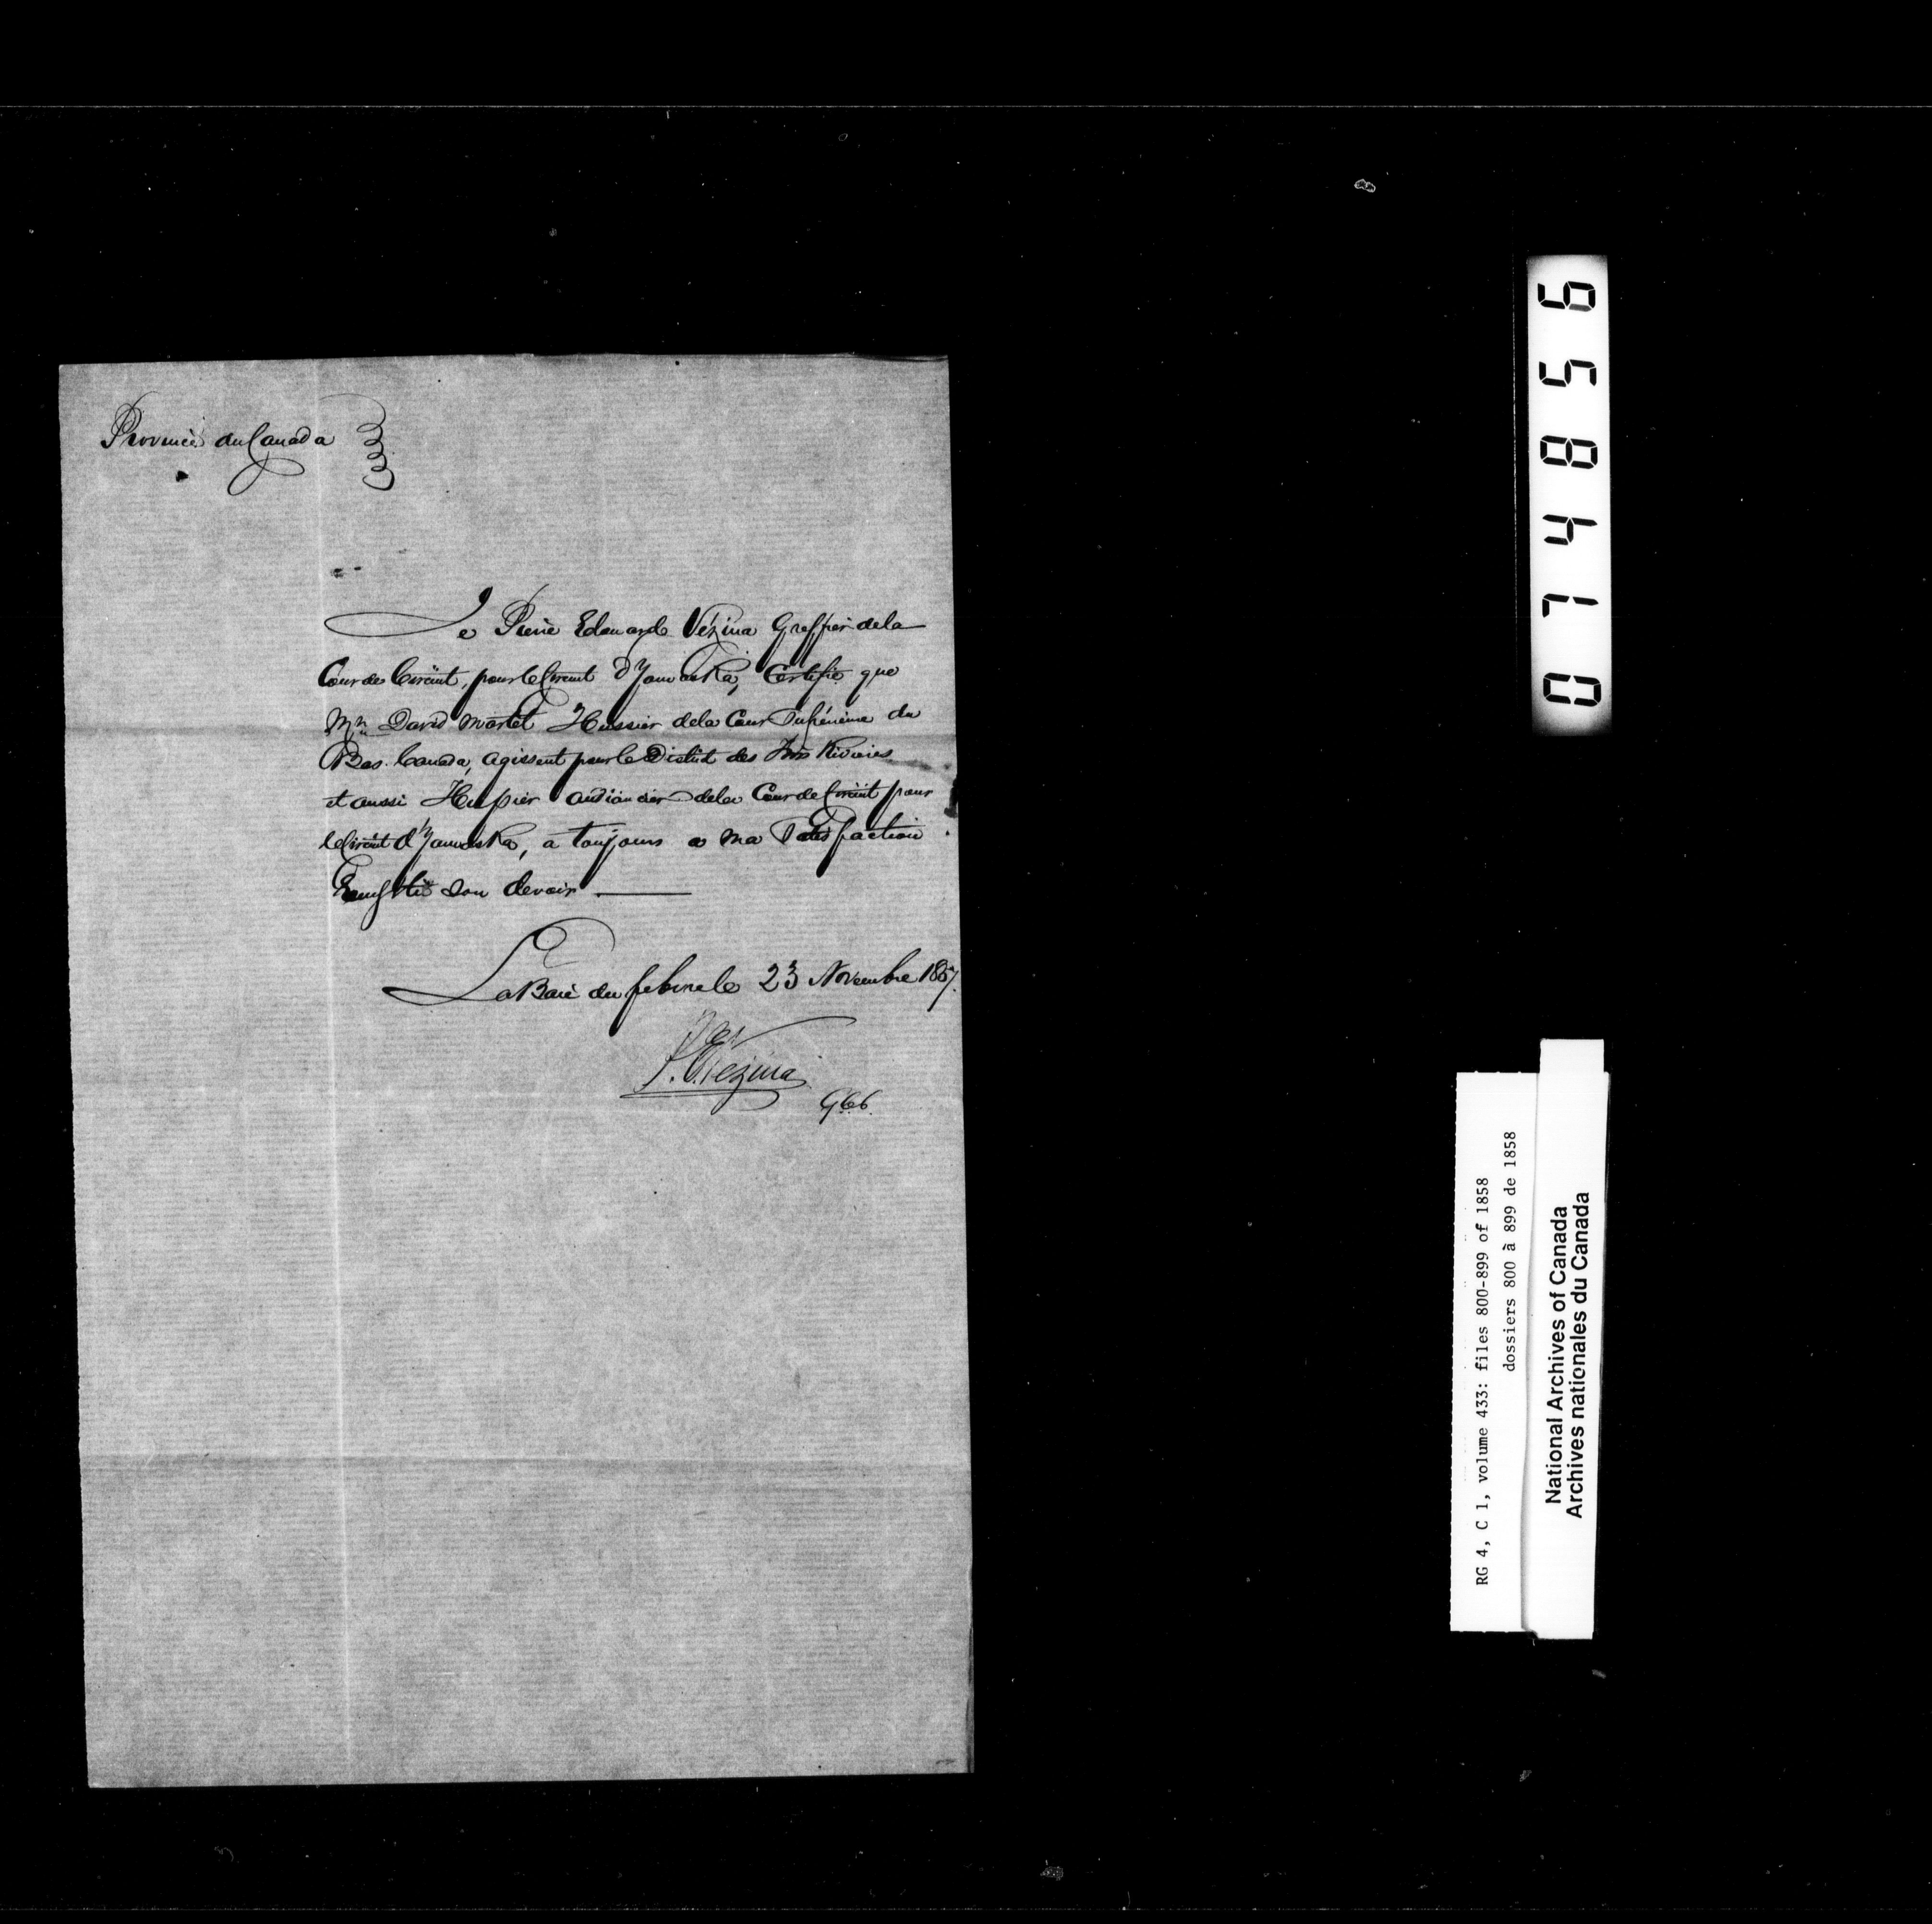 Province du Canada
Je Pierre Edouard Vézina Greffier de la
Cour de Circuit, pour le Circuit d'Yamaska, Certifie que
Mr. David Martel Huissier de la Cour Supérieure du
Bas. Canada, agissent pour le District des Trois Rivieres
et aussi Huissier audiancier de la Cour de Circuit pour
le Circuit d'Yamaska, a toujours a ma Satisfaction
Remplie Son devoir.
La Baie du febvre le 23 Novembre 1857.
P. E. Vézina
G.C.C.
074856
RG 4, C 1, volume 433: files 800-899 of 1858
dossiers 800 à 899 de 1858
National Archives of Canada
Archives nationales du Canada